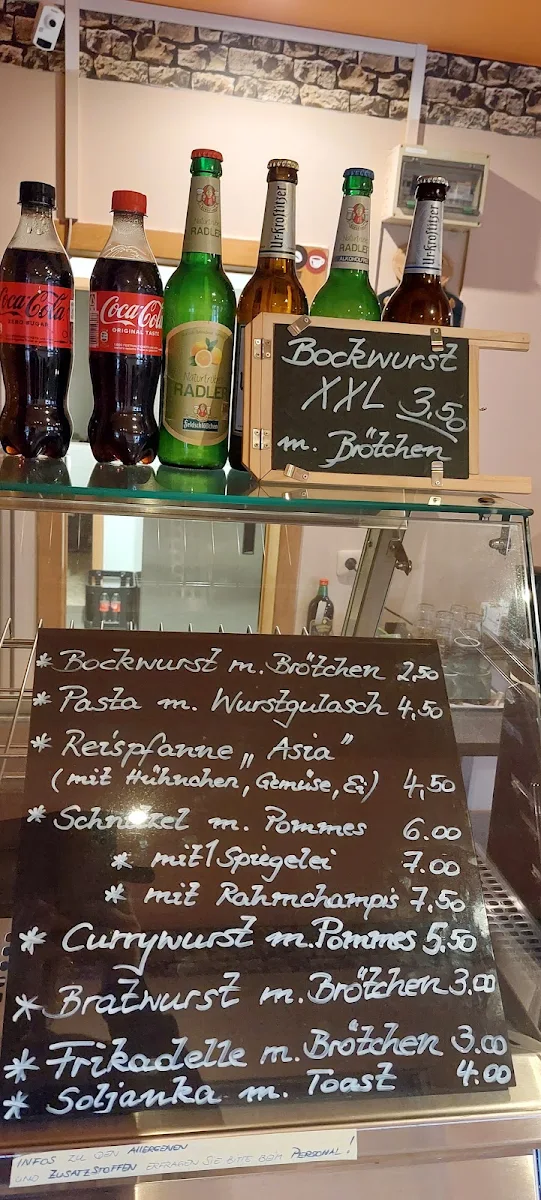 Coca-Cola
ZERO SUGAR
Coca-Cola
ORIGINAL TASTE
RADLER
Naturtrüb
RADLER
Feldschlößchen
Ur-Krostitzer
RADLER
ALKOHOLFREI
Ur-Krostitzer
Bockwurst
XXL 3,50
m. Brötchen
* Bockwurst m. Brötchen 2,50
* Pasta m. Wurstgulasch 4,50
* Reispfanne „Asia"
(mit Hühnchen, Gemüse, Ei) 4,50
* Schnitzel m. Pommes 6.00
* mit 1 Spiegelei 7.00
* mit Rahmchampis 7,50
* Currywurst m. Pommes 5,50
* Bratwurst m. Brötchen 3.00
* Frikadelle m. Brötchen 3.00
* Soljanka m. Toast 4.00
INFOS ZU DEN ALLERGENEN
UND ZUSATZSTOFFEN ERFRAGEN SIE BITTE BEIM PERSONAL!